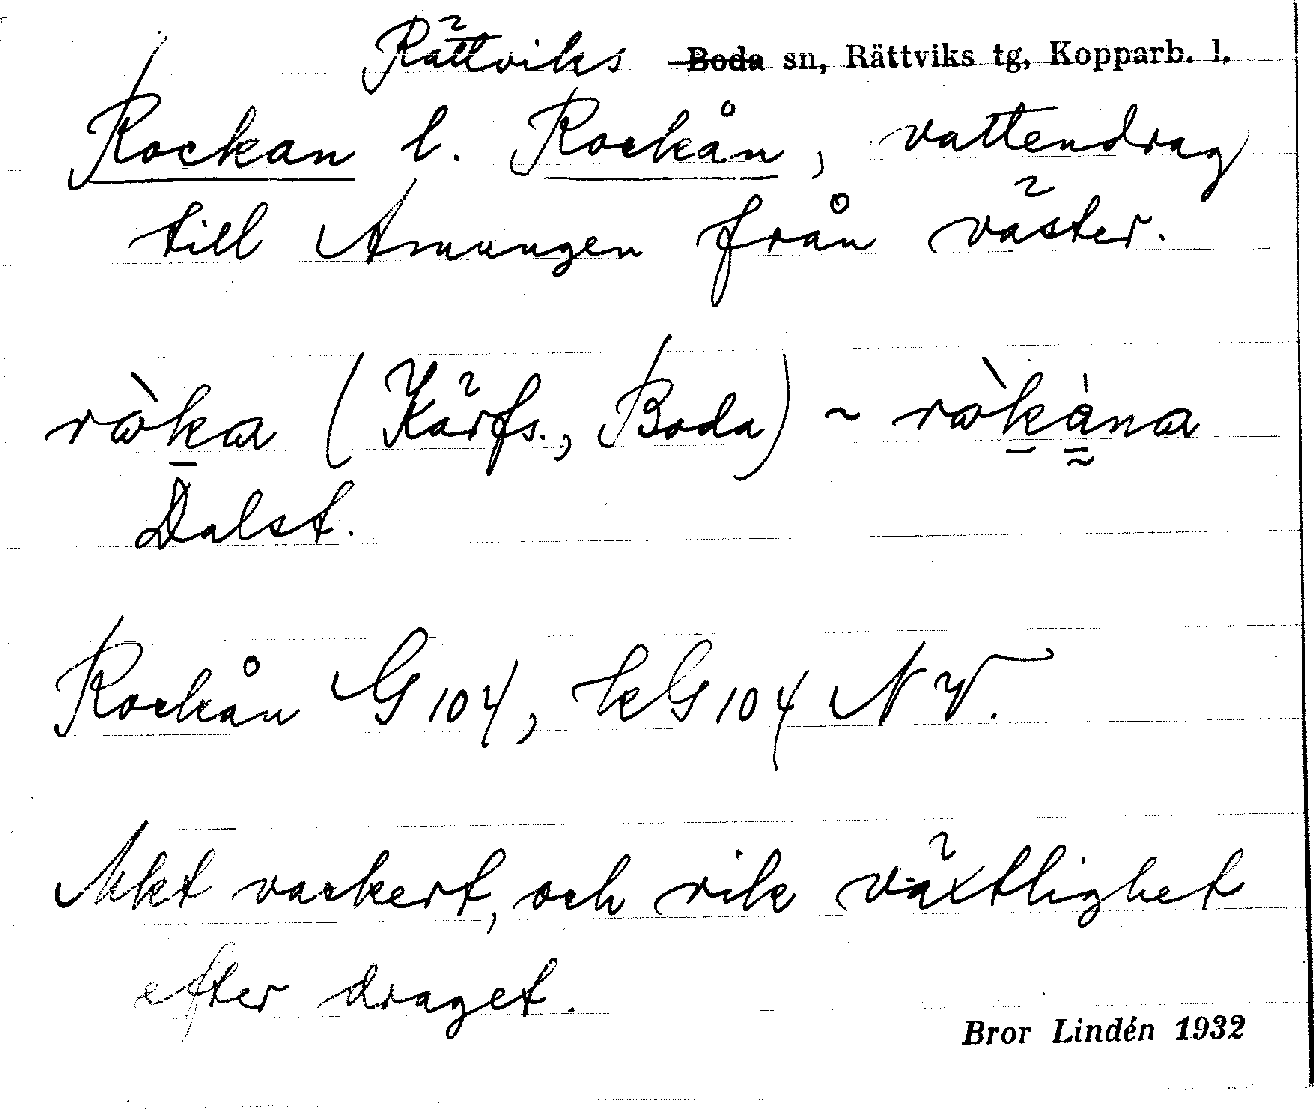 Rättviks Boda sn, Rättviks tg, Kopparb. l.
Rockan l. Rockån, vattendrag
till Amungen från väster.
ròka (Kärfs., Boda) ~ ròkàna
Dalst.
Rockån G 104, kG 104 NV.
Mkt vackert, och rik växtlighet
efter draget.
Bror Lindén 1932